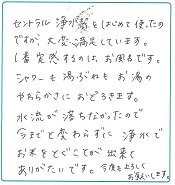 セントラル浄水器をはじめて使ったの
ですが、大変満足しています。
1番実感するのは、お風呂です。
シャワーも湯ぶねもお湯の
やわらかさにおどろきます。
水流が落ちなかったので
今までと変わらずに浄水で
お米をとぐことが出来て
ありがたいです。今後もよろしく
お願いします。